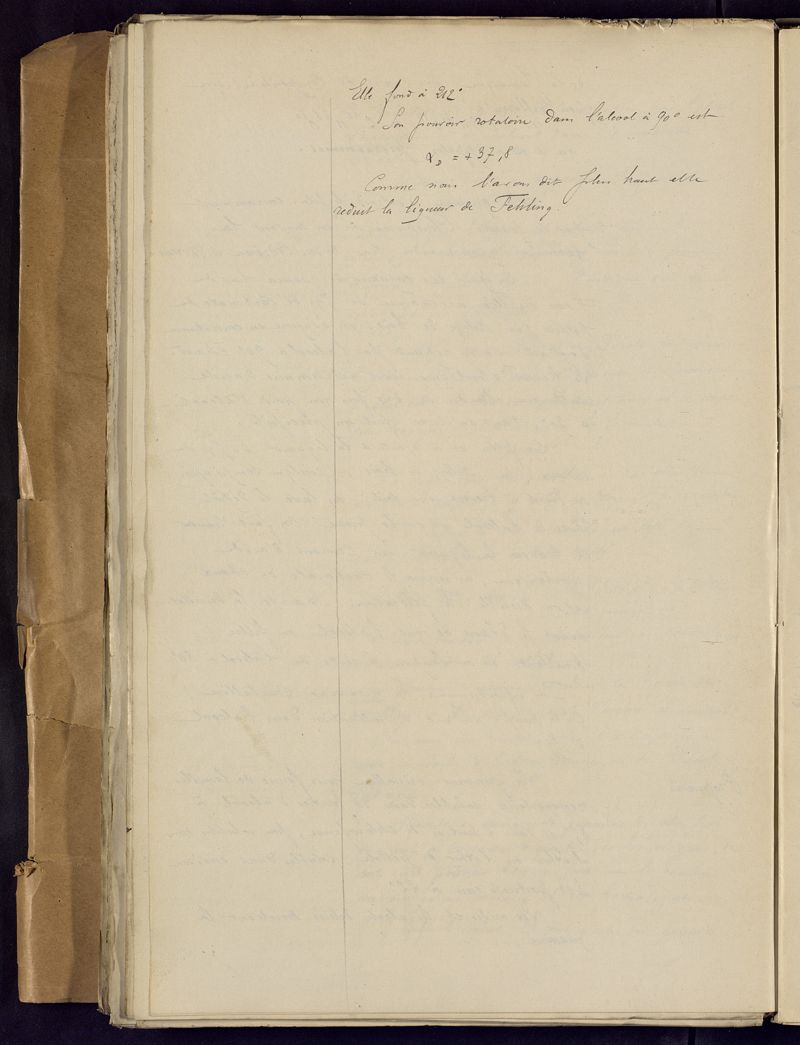 Elle fond à 212°
Son pouvoir rotatoire dans l'alcool à 90° est
α D = + 37,8
Comme nous l'avons dit plus haut elle
réduit la liqueur de Fehling.